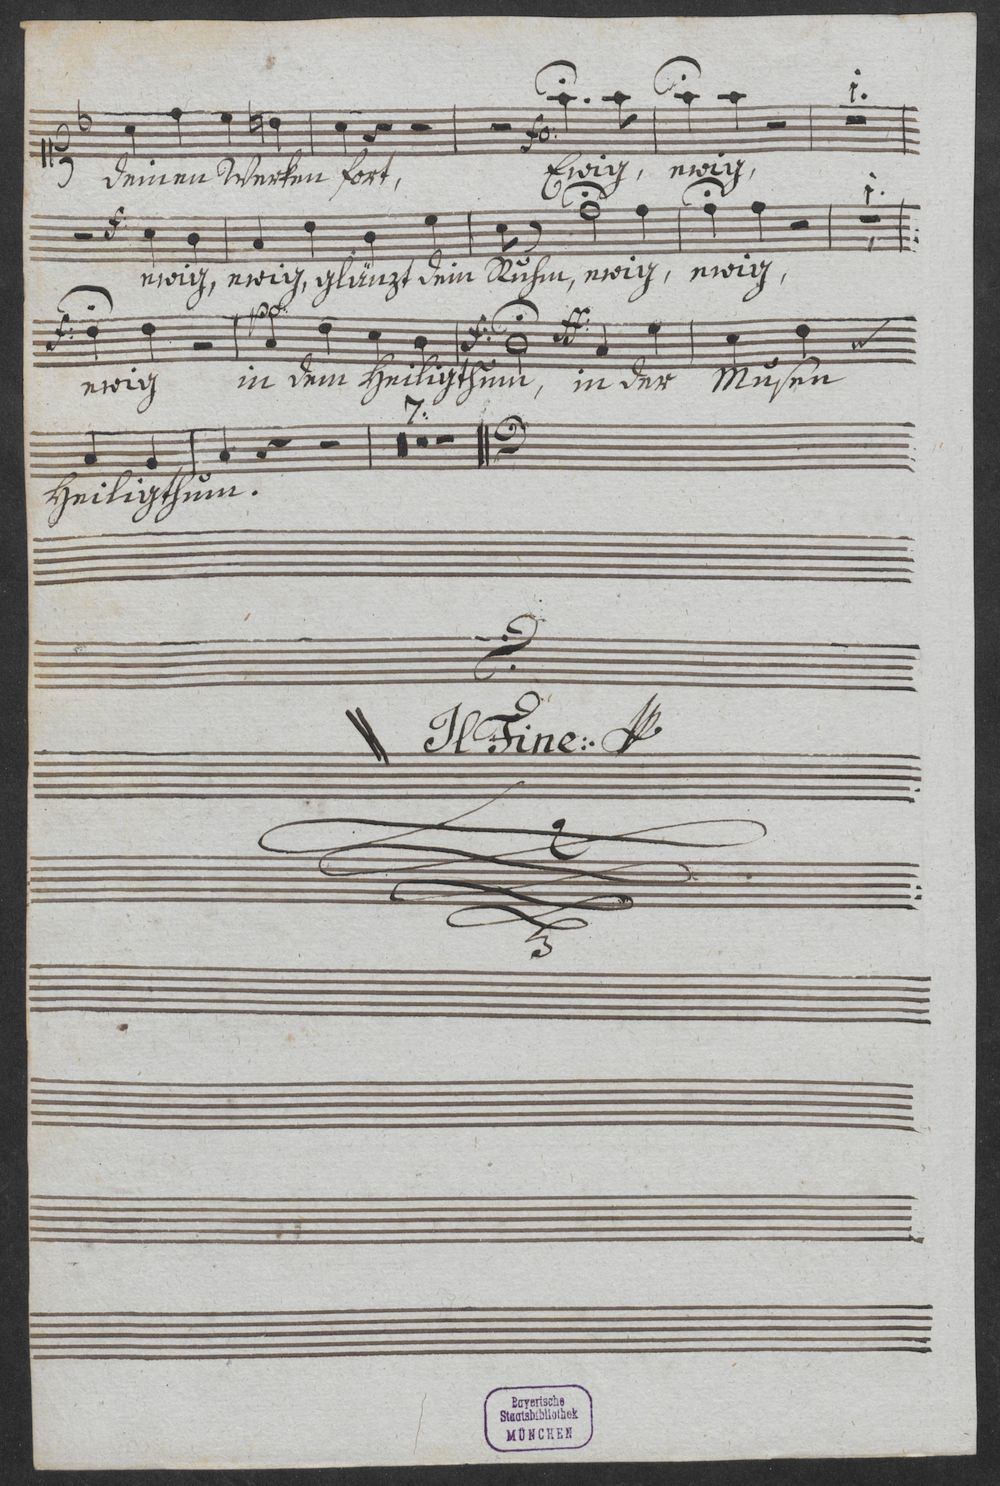 fo: i.
deinen Werken fort, Ewig, ewig,
f. i.
ewig, ewig, glänzt dein Ruhm, ewig, ewig,
f. po. f. ff.
ewig in dem Heiligthum, in der Musen
7.
Heiligthum.
Il Fine
Bayerische
Staatsbibliothek
MÜNCHEN